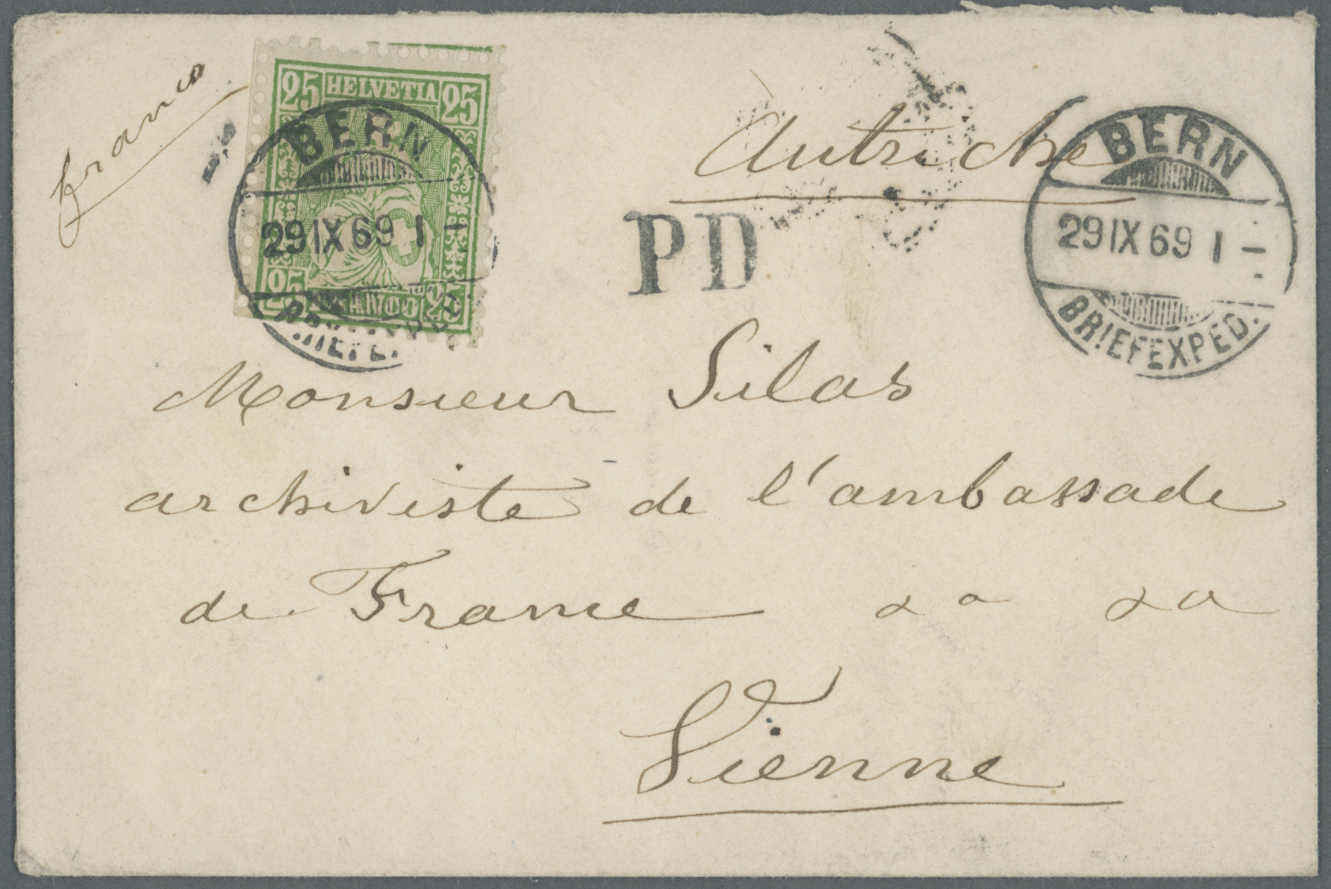 franco
25 HELVETIA 25
FRANCO 25
BERN
29 IX 69 I
Autriche
BERN
29 IX 69 I
BRIEFEXPED.
PD
Monsieur Silas
archiviste de l'ambassade
de France
Vienne